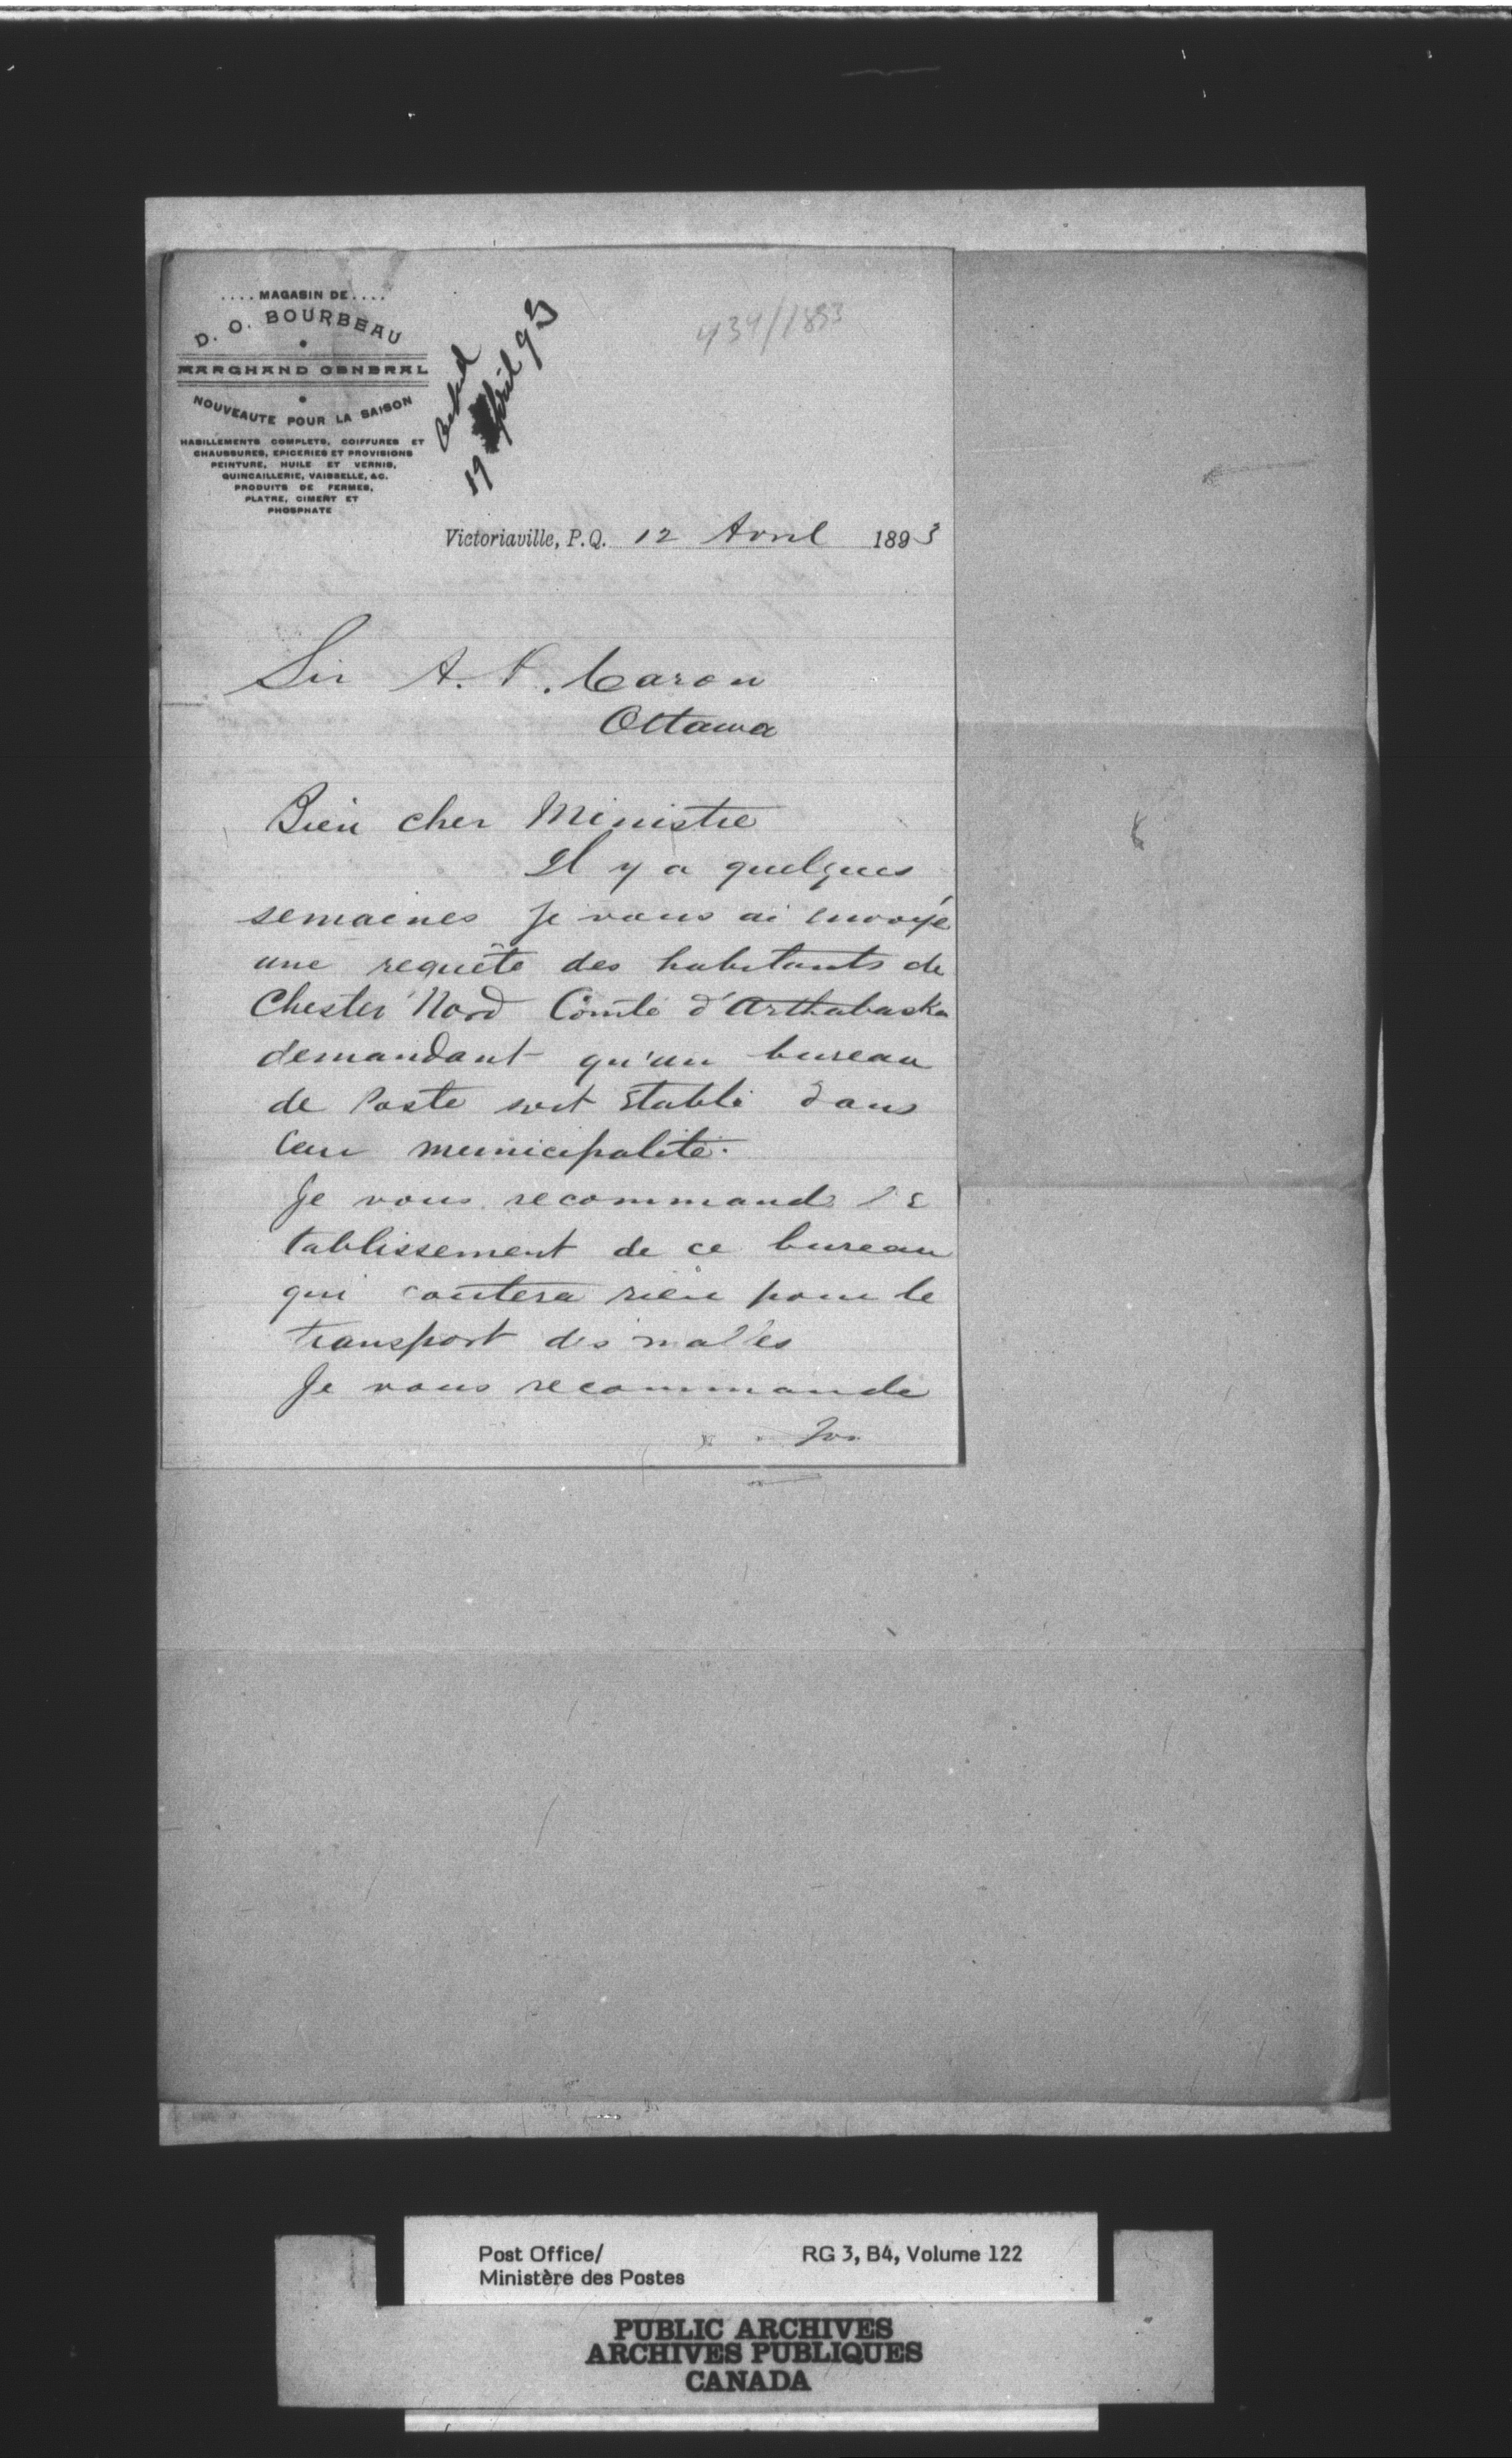 .... MAGASIN DE ....
D. O. BOURBEAU
MARCHAND GENERAL
NOUVEAUTE POUR LA SAISON
HABILLEMENTS COMPLETS, COIFFURES ET
CHAUSSURES, EPICERIES ET PROVISIONS
PEINTURE, HUILE ET VERNIS,
QUINCAILLERIE, VAISSELLE, &C.
PRODUITS DE FERMES,
PLATRE, CIMENT ET
PHOSPHATE
19 April 93
434/1893
Victoriaville, P.Q. 12 Avril 1893
Sir A. P. Caron
Ottawa
Bien cher Ministre
Il y a quelques
semaines je vous ai envoyé
une requête des habitants de
Chester Nord Comté d'Arthabaska
demandant qu'un bureau
de Poste soit établi dans
leur municipalité.
Je vous recommande l'é
tablissement de ce bureau
qui coutera rien pour le
transport des malles
Je vous recommande
Post Office/
Ministère des Postes
RG 3, B4, Volume 122
PUBLIC ARCHIVES
ARCHIVES PUBLIQUES
CANADA